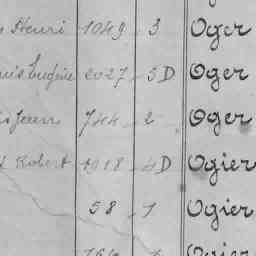 Henri 1049 3 Oger
Eugène 2027 5D Oger
Jean 744 2 Oger
Robert 1918 4D Ogier
58 1 Ogier
Ogier